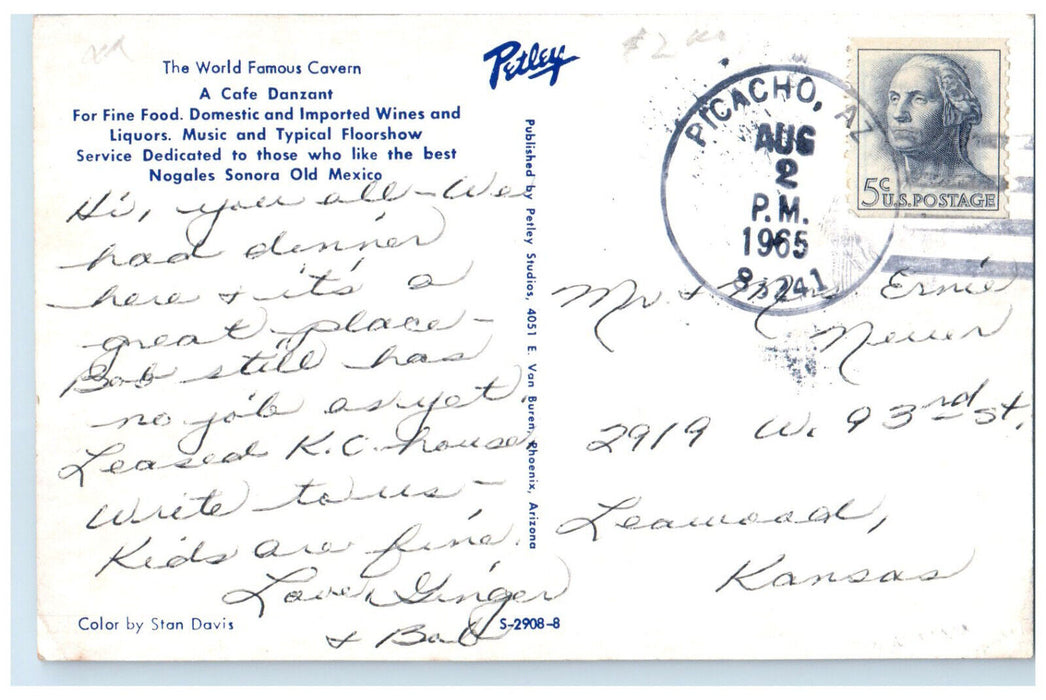 $2
The World Famous Cavern
A Cafe Danzant
For Fine Food. Domestic and Imported Wines and
Liquors. Music and Typical Floorshow
Service Dedicated to those who like the best
Nogales Sonora Old Mexico
Hi, you all - We
had dinner
here & it's a
great place -
Bob still has
no job as yet.
Leased K.C. house
Write to us -
Kids are fine.
Love, Ginger
& Bob
Color by Stan Davis
S-2908-8
Petley
Published by Petley Studios, 4051 E. Van Buren, Phoenix, Arizona
PICACHO, AZ
AUG
2
P.M.
1965
85241
5c
U.S. POSTAGE
Mr & Mrs Ernie
2919 W. 93rd St.
Leawood,
Kansas